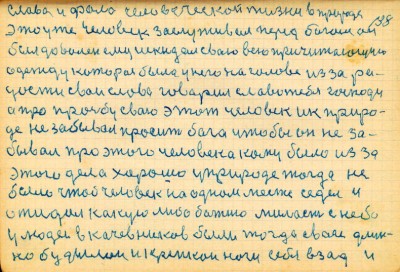 слава и фала человеческой жизни в природе
этоуже человек заслуживал перед богам он
был доволен ему и кидал сваю
одежду каторая была у него на галове из за ра-
дости сваи слова говарил слава тебя госпаду
а про прозбу сваю этот человек ик приро-
де незабывал прасит бага чтобы он не за-
бывал про этого человека кому было из за
этого дела харашо уприроде тогда не
было чтобы человек на одном месте седел и
ожидал какую либо бажию миласть с неба
улюдей в качевников были тогда сваее
и крепкаи наги себя взад и